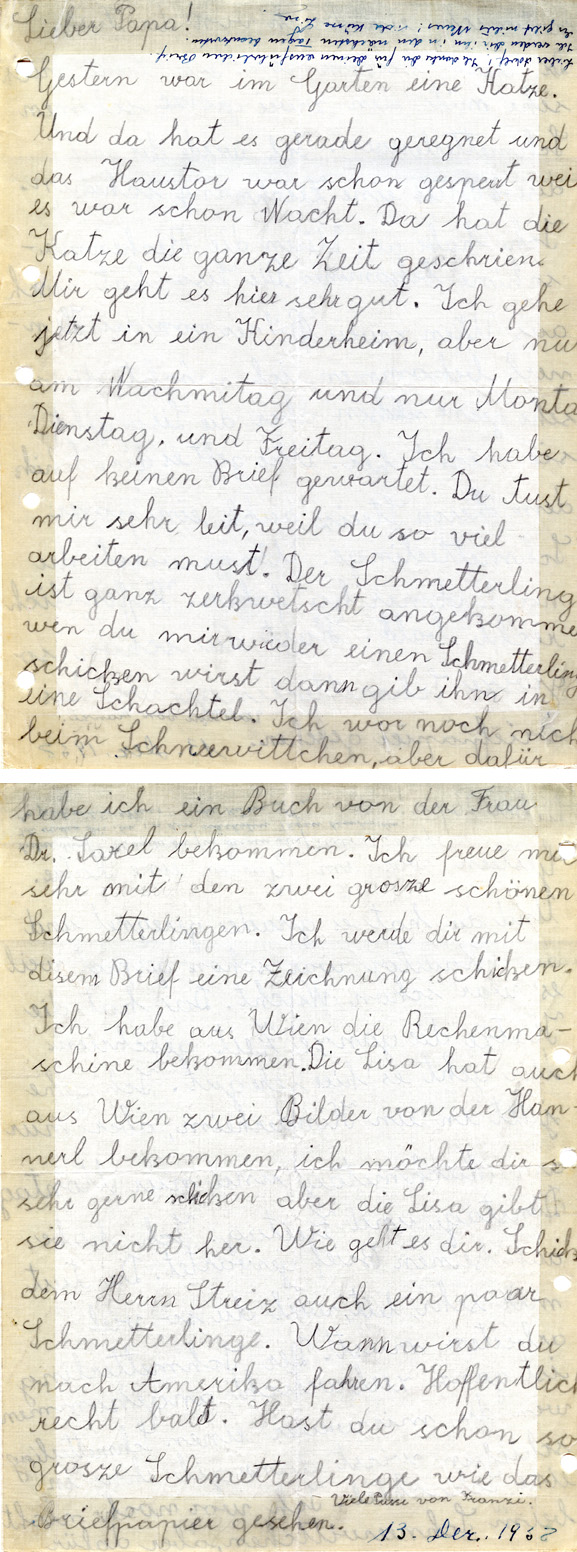 Lieber Papa!
Lieber Adolf! Ich danke dir für deinen ausführlichen Brief.
Ich werde dir ihn in den nächsten Tagen beantworten.
Es gibt nichts Neues! Lisa
Gestern war im Garten eine Katze.
Und da hat es gerade geregnet und
das Haustor war schon gesperrt wei
es war schon Nacht. Da hat die
Katze die ganze Zeit geschrien.
Mir geht es hier sehr gut. Ich gehe
jetzt in ein Kinderheim, aber nu
am Nachmitag und nur Monta
Dienstag, und Freitag. Ich habe
auf keinen Brief gewartet. Du tust
mir sehr leit, weil du so viel
arbeiten must! Der Schmetterling
ist ganz zerkwetscht angekomme
wen du mir wieder einen Schmetterling
schicken wirst dann gib ihn in
eine Schachtel. Ich wor noch nich
beim Schneewittchen, aber dafür
habe ich ein Buch von der Frau
Dr. Saxel bekommen. Ich freue mi
sehr mit den zwei grosze schönen
Schmetterlingen. Ich werde dir mit
disem Brief eine Zeichnung schicken.
Ich habe aus Wien die Rechenma-
schine bekommen. Die Lisa hat auch
aus Wien zwei Bilder von der Han-
nerl bekommen, ich möchte dir s
sehr gerne schicken aber die Lisa gibt
sie nicht her. Wie geht es dir. Schick
dem Herrn Streiz auch ein paar
Schmetterlinge. Wann wirst du
nach Amerika fahren. Hoffentlich
recht balt. Hast du schon so
grosze Schmetterlinge wie das
Briefpapier gesehen.
Viele Pussi von Franzi.
13. Dez. 193